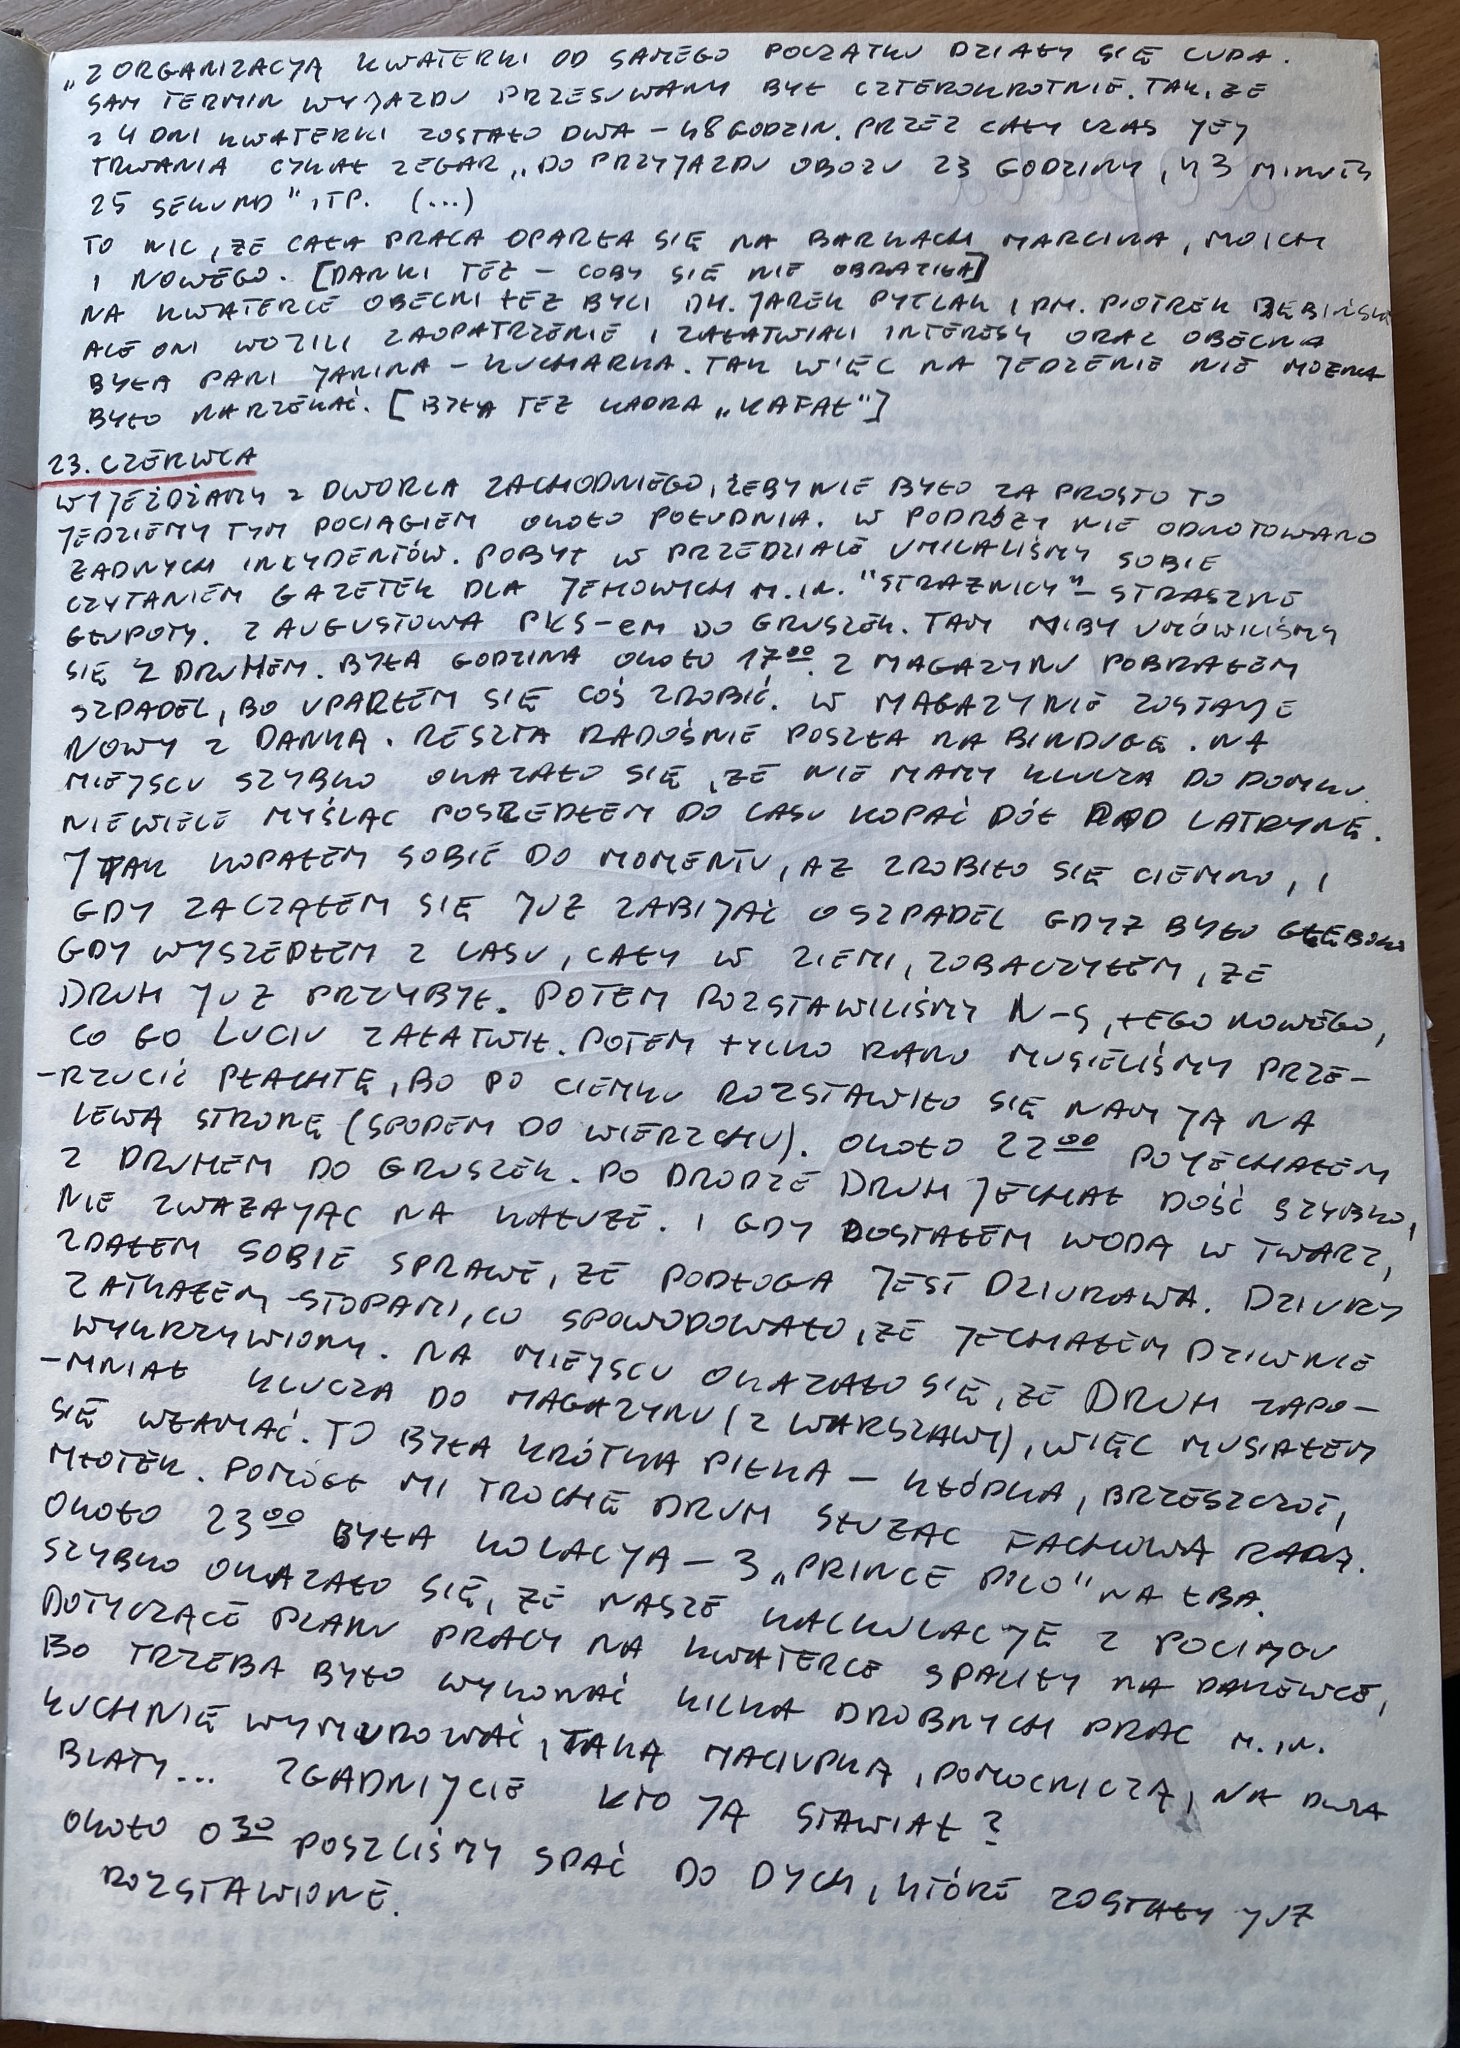 „Z ORGANIZACJĄ KWATERKI OD SAMEGO POCZĄTKU DZIAŁY SIĘ CUDA.
SAM TERMIN WYJAZDU PRZESUWANY BYŁ CZTEROKROTNIE. TAK, ŻE
Z 4 DNI KWATERKI ZOSTAŁO DWA – 48 GODZIN. PRZEZ CAŁY CZAS JEJ
TRWANIA CYKAŁ ZEGAR „DO PRZYJAZDU OBOZU 23 GODZINY, 43 MINUTY
25 SEKUND" ITP. (...)
TO NIC, ŻE CAŁA PRACA OPARŁA SIĘ NA BARKACH MARCINA, MOICH
I NOWEGO. [DANKI TEŻ – COBY SIĘ NIE OBRAZIŁA]
NA KWATERCE OBECNI TEŻ BYLI DH. JAREK PYTLAK I PM. PIOTREK
ALE ONI WOZILI ZAOPATRZENIE I ZAŁATWIALI INTERESY ORAZ OBECNA
BYŁA PANI JANINA – KUCHARKA. TAK WIĘC NA JEDZENIE NIE MOŻNA
BYŁO NARZEKAĆ. [BYŁA TEŻ KADRA „KAFAŁ"]
23. CZERWCA
WYJEŻDŻAMY Z DWORCA ZACHODNIEGO, ŻEBY NIE BYŁO ZA PROSTO TO
JEDZIEMY TYM POCIĄGIEM OKOŁO POŁUDNIA. W PODRÓŻY NIE ODNOTOWANO
ŻADNYCH INCYDENTÓW. POBYT W PRZEDZIALE UMILALIŚMY SOBIE
CZYTANIEM GAZETEK DLA JEHOWYCH M.IN. "STRAŻNICY" – STRASZNE
GŁUPOTY. Z AUGUSTOWA PKS-em DO GRUSZEK. TAM NIBY UMÓWILIŚMY
SIĘ Z DRUHEM. BYŁA GODZINA OKOŁO 17⁰⁰. Z MAGAZYNU POBRAŁEM
SZPADEL, BO UPARŁEM SIĘ COŚ ZROBIĆ. W MAGAZYNIE ZOSTAJE
NOWY Z DANKĄ. RESZTA RADOŚNIE POSZŁA NA BINDUGĘ. NA
MIEJSCU SZYBKO OKAZAŁO SIĘ, ŻE NIE MAMY KLUCZA DO DOMKU.
NIEWIELE MYŚLĄC POSZEDŁEM DO LASU KOPAĆ DÓŁ POD LATRYNĘ.
I TAK KOPAŁEM SOBIE DO MOMENTU, AŻ ZROBIŁO SIĘ CIEMNO, I
GDY ZACZĄŁEM SIĘ JUŻ ZABIJAĆ O SZPADEL GDYŻ BYŁO GŁĘBOKO
GDY WYSZEDŁEM Z LASU, CAŁY W ZIEMI, ZOBACZYŁEM, ŻE
DRUH JUŻ PRZYBYŁ. POTEM ROZSTAWILIŚMY N-S, TEGO NOWEGO,
CO GO LUCIU ZAŁATWIŁ. POTEM TYLKO RANO MUSIELIŚMY PRZE-
-RZUCIĆ PŁACHTĘ, BO PO CIEMKU ROZSTAWIŁO SIĘ NAM JĄ NA
LEWĄ STRONĘ (SPODEM DO WIERZCHU). OKOŁO 22⁰⁰ POJECHAŁEM
Z DRUHEM DO GRUSZEK. PO DRODZE DRUH JECHAŁ DOŚĆ SZYBKO,
NIE ZWAŻAJĄC NA KAŁUŻE. I GDY DOSTAŁEM WODĄ W TWARZ,
ZDAŁEM SOBIE SPRAWĘ, ŻE PODŁOGA JEST DZIURAWA. DZIURY
ZATKAŁEM STOPAMI, CO SPOWODOWAŁO, ŻE JECHAŁEM DZIWNIE
WYKRZYWIONY. NA MIEJSCU OKAZAŁO SIĘ, ŻE DRUH ZAPO-
-MNIAŁ KLUCZA DO MAGAZYNU (Z WARSZAWY), WIĘC MUSIAŁEM
SIĘ WŁAMAĆ. TO BYŁA KRÓTKA PIŁKA – KŁÓDKA, BRZESZCZOT,
MŁOTEK. POMÓGŁ MI TROCHĘ DRUH SŁUŻĄC FACHOWĄ RADĄ.
OKOŁO 23⁰⁰ BYŁA KOLACJA – 3 „PRINCE POLO" NA ŁBA.
SZYBKO OKAZAŁO SIĘ, ŻE NASZE KALKULACJE Z POCIĄGU
DOTYCZĄCE PLANU PRACY NA KWATERCE SPALIŁY NA PANEWCE,
BO TRZEBA BYŁO WYKONAĆ KILKA DROBNYCH PRAC M.IN.
KUCHNIĘ WYMUROWAĆ, TAKĄ MACIUPKĄ, POMOCNICZĄ, NA DWA
BLATY... ZGADNIJCIE KTO JĄ STAWIAŁ?
OKOŁO 0³⁰ POSZLIŚMY SPAĆ DO DYCH, KTÓRE ZOSTAŁY JUŻ
ROZSTAWIONE.